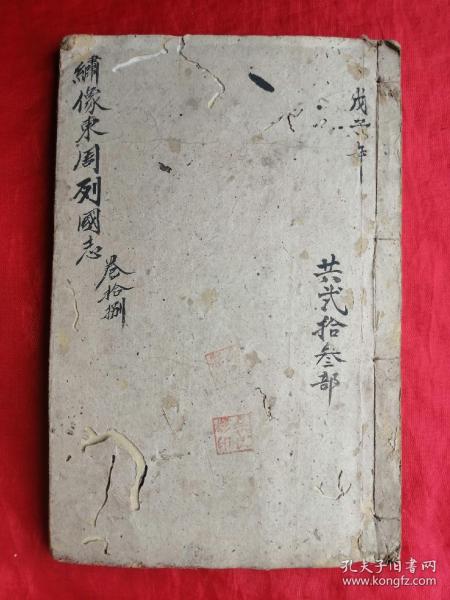 戊
年
共弍拾叁部
繡像東周列國志
卷拾捌
孔夫子旧书网
www.kongfz.com